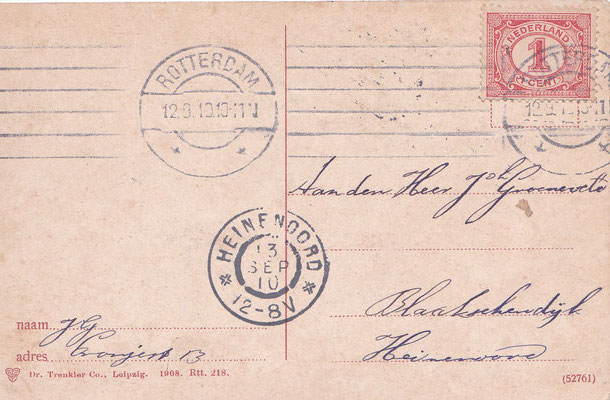 ROTTERDAM
12.9.10.10-11V
NEDERLAND
1
CENT
Aan den Heer Joh Groeneveld
HEINENOORD
13
SEP
10
12-8V
Blaakschendijk
Heinenoord
naam JG
adres Cronjéstr 13
Dr. Trenkler Co., Leipzig. 1908. Rtt. 218.
(52761)